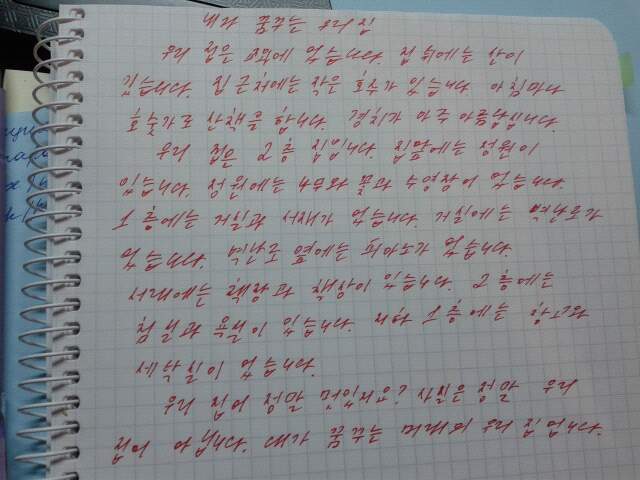 내가 꿈꾸는 우리 집
우리 집은 교외에 있습니다. 집 뒤에는 산이
있습니다. 집 근처에는 작은 호수가 있습니다 아침마다
호숫가로 산책을 합니다. 경치가 아주 아름답습니다.
우리 집은 2층 집입니다. 집앞에는 정원이
있습니다. 정원에는 나무와 꽃과 수영장이 있습니다.
1층에는 거실과 서재가 있습니다. 거실에는 벽난로가
있습니다. 벽난로 옆에는 피아노가 있습니다.
서재에는 책장과 책상이 있습니다. 2층에는
침실과 욕실이 있습니다. 지하 1층에는 창고와
세탁실이 있습니다.
우리 집이 정말 멋있지요? 사실은 정말 우리
집이 아닙니다. 내가 꿈꾸는 미래의 우리 집입니다.